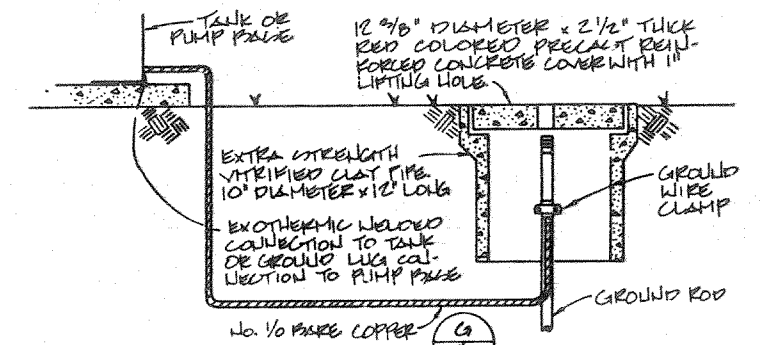 TANK OR
PUMP BASE
12 3/8" DIAMETER x 2 1/2" THICK
RED COLORED PRECAST REIN-
FORCED CONCRETE COVER WITH 1"
LIFTING HOLE.
EXTRA STRENGTH
VITRIFIED CLAY PIPE
10" DIAMETER x 12" LONG
GROUND
WIRE
CLAMP
EXOTHERMIC WELDED
CONNECTION TO TANK
OR GROUND LUG CON-
NECTION TO PUMP BASE
GROUND ROD
No. 1/0 BARE COPPER
G